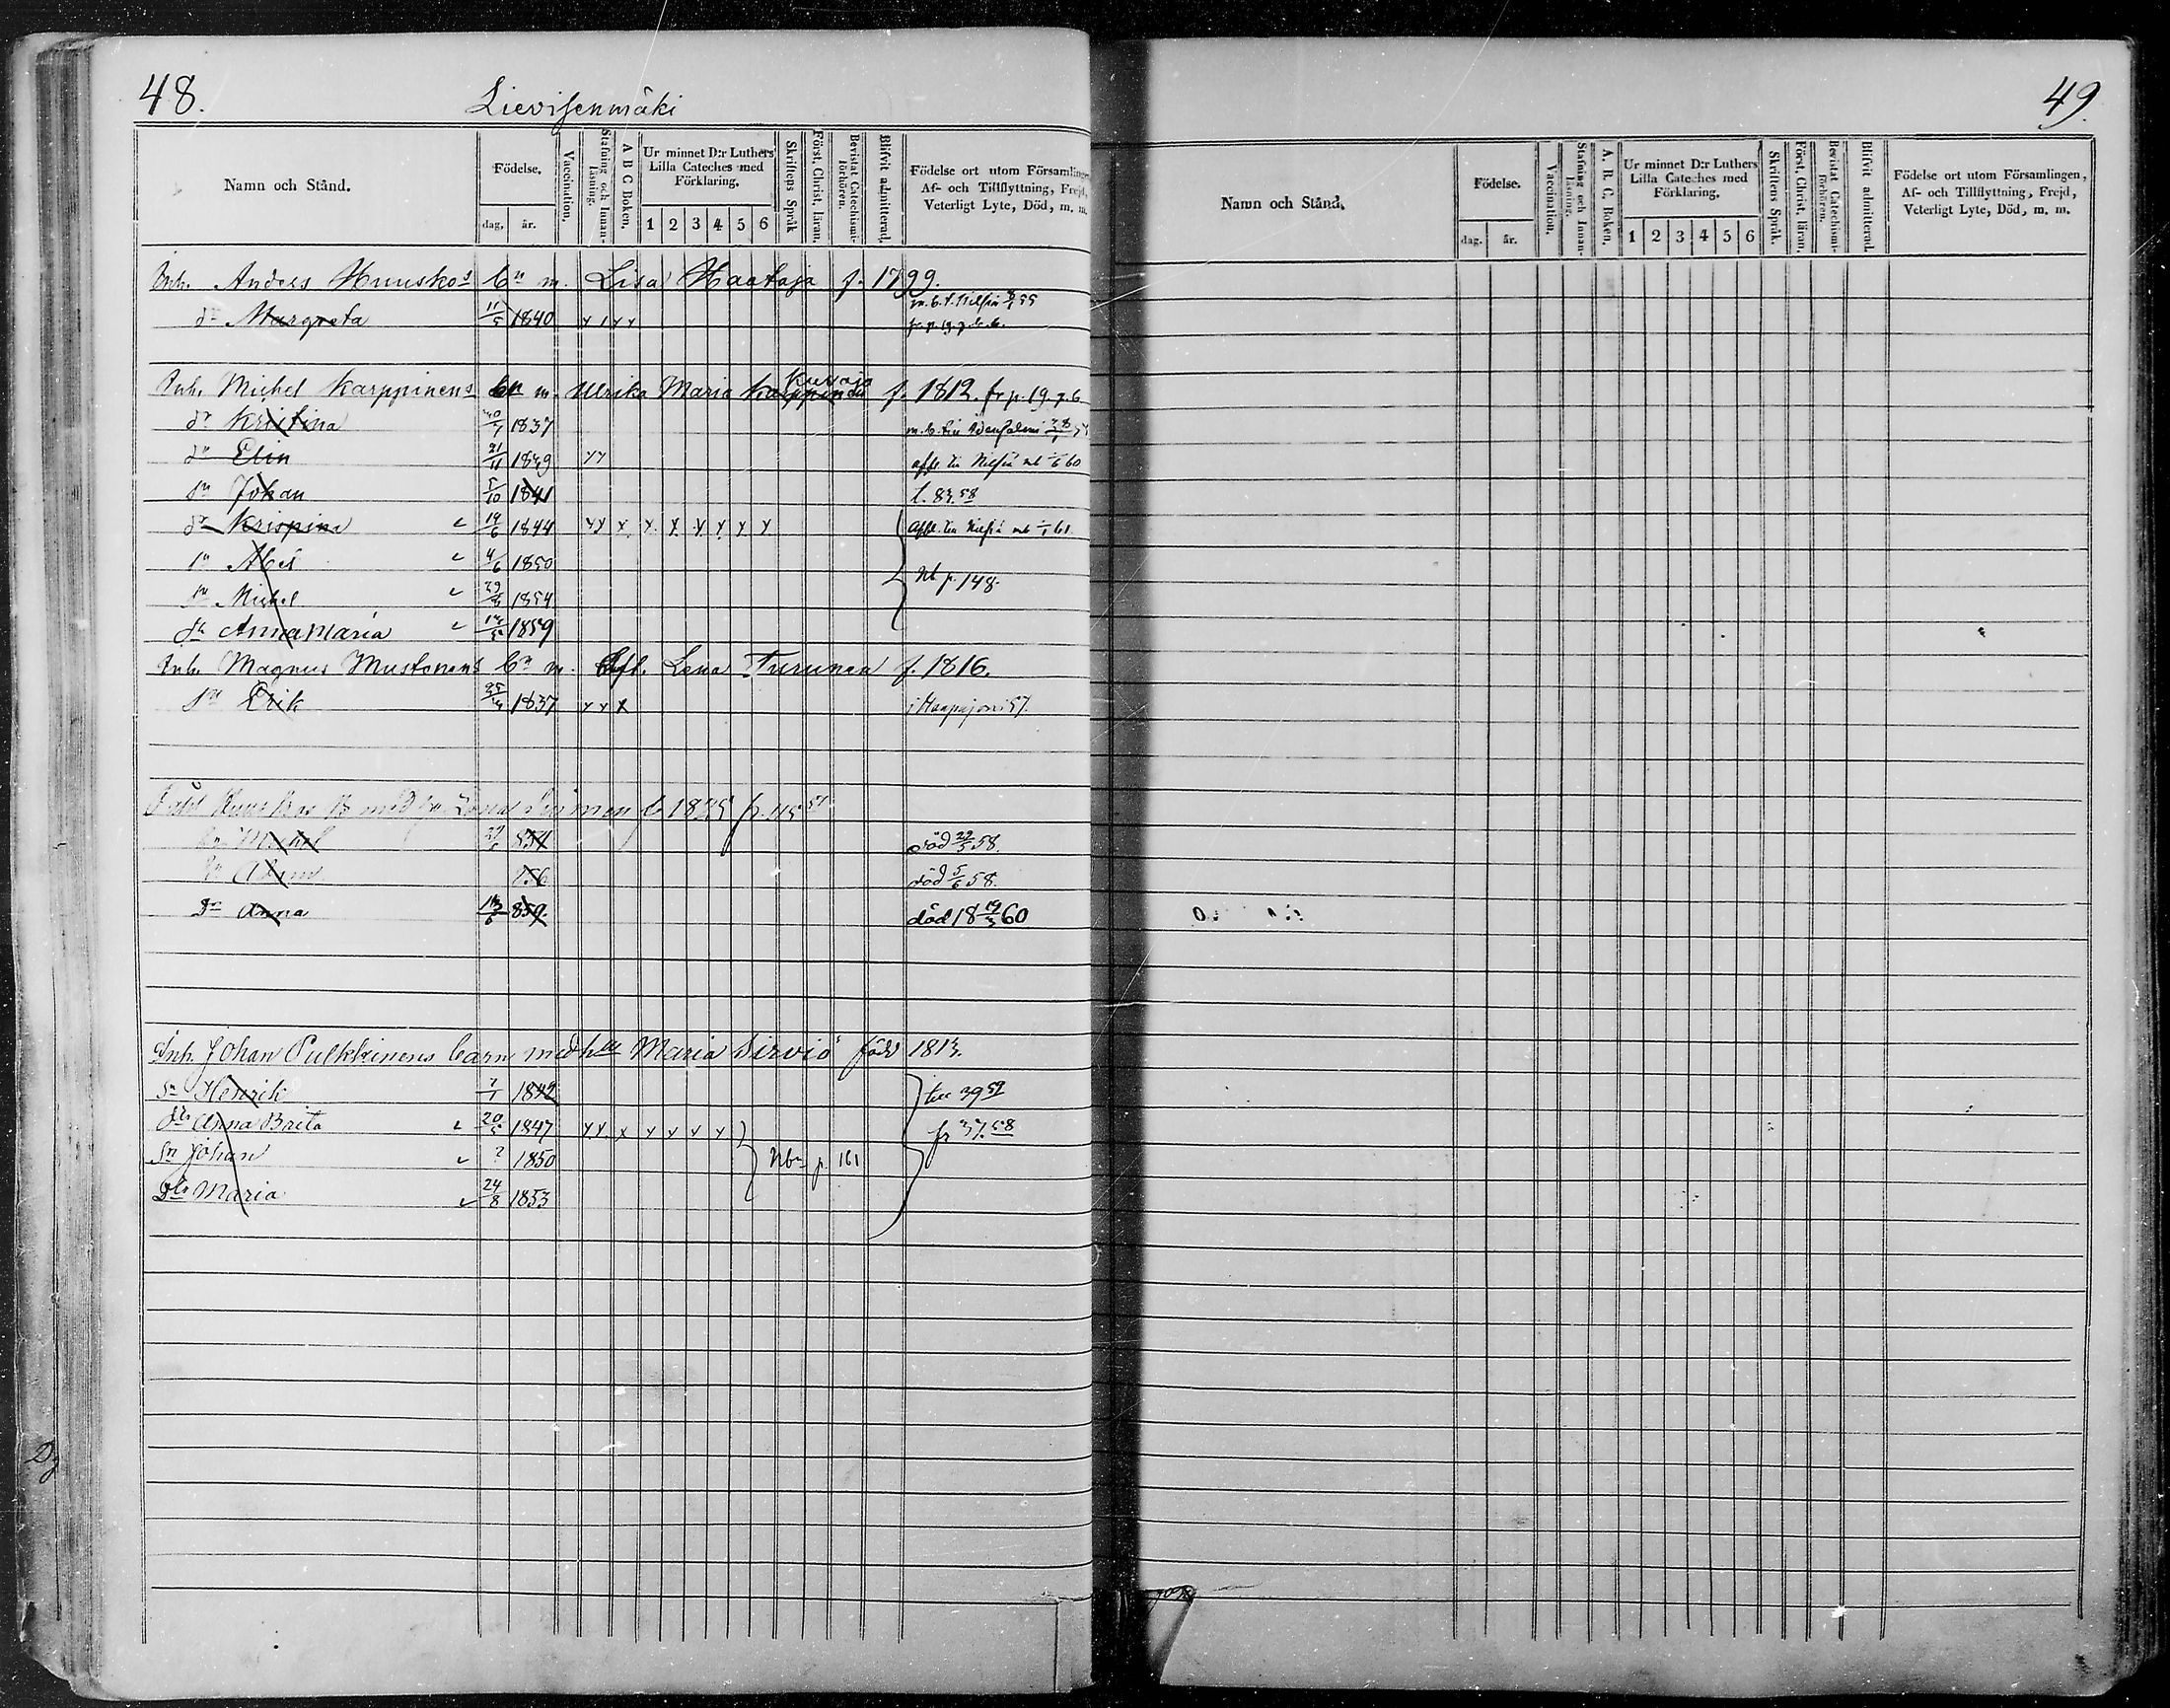 48.
Lievisenmäki
Namn och Stånd.
Födelse.
dag. år.
Vaccination.
Stafning och Innan-läsning.
A B C Boken.
Ur minnet D:r Luthers Lilla Cateches med Förklaring.
1 2 3 4 5 6
Skriftens Språk
Först. Christ. läran.
Bevistat Catechismi-förhören.
Blifvit admitterad.
Födelse ort utom Församlingen,
Af- och Tillflyttning, Frejd,
Veterligt Lyte, Död, m. m.
Inh. Anders Huuskos bn m. Lisa Haataja f. 1799.
dr Margreta 11/5 1840 x x x x
Inh. Michel Karppinens bn m. Ulrika Maria Karppinen Kuvaja f. 1812. fr p. 19. g. b.
dr Kristina 1837
dr Elin 21/11 1839 x x affl. till Nilsiä mb 60
sn Johan 5/10 1841 t. 83. 58
dr Krispina 19/6 1844 x x x x x x x x x affl. till Nilsiä mb 61.
sn Abel 4/6 1850
Nb p. 148.
sn Michel 1854
dr Anna Maria 1859
Inh. Magnus Mustonens bn m. Lena Turunen f. 1816.
sn Erik 1837 x x x i Haapajärvi 57.
sn Michel 854 död 22/5 58.
sn Adam 56 död 5/6 58.
Dr Anna 859. död 18 60
Inh. Johan Pulkkinens barn med hu Maria Sirviö född 1813.
Sn Henrik 7/1 1842 till 39 59
dr Anna Brita 20/5 1847 x x x x x x x fr 37. 58
Sn Johan ? 1850 Nb p. 161
Dr Maria 24/8 1853
49.
Namn och Stånd.
Födelse.
dag. år.
Vaccination.
Stafning och Innan-läsning.
A. B. C. Boken.
Ur minnet D:r Luthers Lilla Cateches med Förklaring.
1 2 3 4 5 6
Skriftens Språk.
Först. Christ. läran.
Bevistat Catechismi-förhören.
Blifvit admitterad.
Födelse ort utom Församlingen,
Af- och Tillflyttning, Frejd,
Veterligt Lyte, Död, m. m.